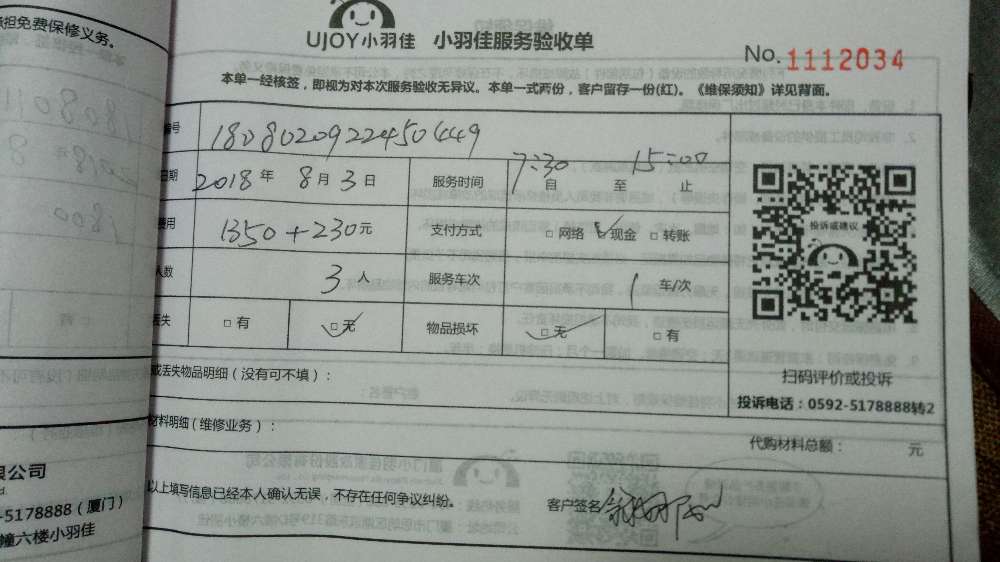 承担免费保修义务。
UJOY小羽佳 小羽佳服务验收单
No. 1112034
本单一经核签，即视为对本次服务验收无异议。本单一式两份，客户留存一份(红)。《维保须知》详见背面。
编号 1808020922450449
日期 2018 年 8 月 3 日 服务时间 7:30 自 至 15:00 止
费用 1350+230 元 支付方式 □ 网络 ☑ 现金 □ 转账
人数 3 人 服务车次 1 车/次
丢失 □ 有 ☑ 无 物品损坏 ☑ 无 □ 有
投诉或建议
扫码评价或投诉
投诉电话：0592-5178888转2
或丢失物品明细（没有可不填）：
材料明细（维修业务）： 代购材料总额： 元
以上填写信息已经本人确认无误，不存在任何争议纠纷。 客户签名
限公司
-5178888（厦门）
幢六楼小羽佳